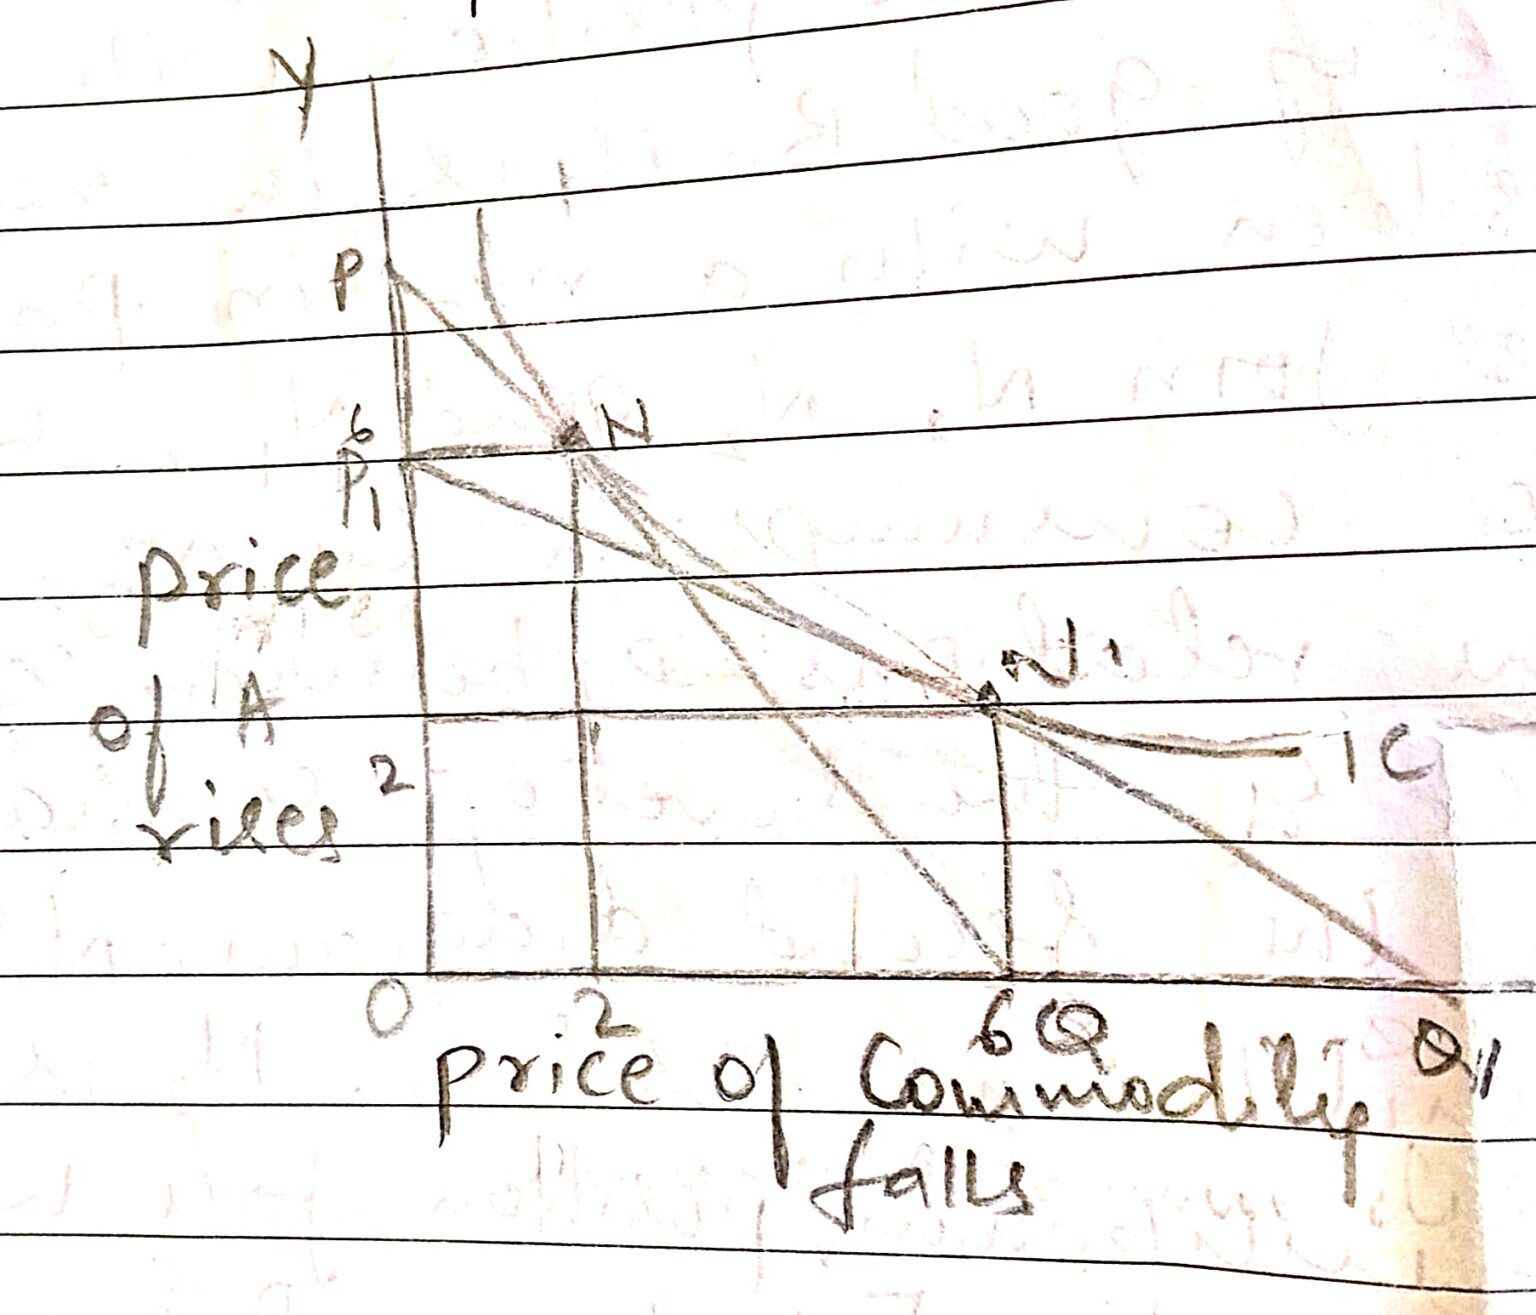 Y
P
6
N
P1
price
of A
rises
2
N1
IC
0
2
6 Q
Q1
price of Commodity
falls